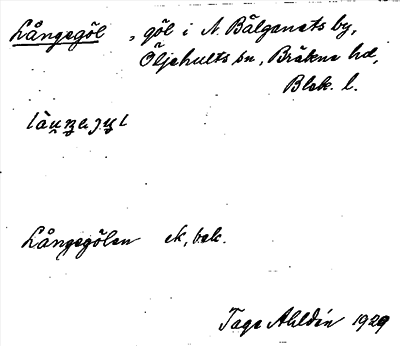 Långegöl, göl i N. Bälganets by,
Öljehults sn, Bräkne hd,
Blek. l.
Långegölen ek, bek.
Tage Ahldén 1929